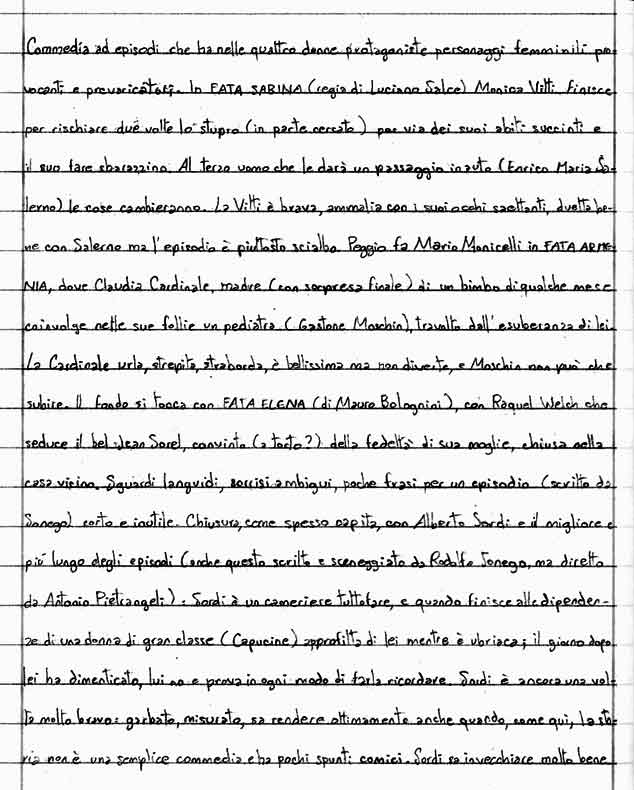 Commedia ad episodi che ha nelle quattro donne protagoniste personaggi femminili pro
vocanti e prevaricatori. In FATA SABINA (regia di Luciano Salce) Monica Vitti finisce
per rischiare due volte lo stupro (in parte cercato) per via dei suoi abiti succinti e
il suo fare sbarazzino. Al terzo uomo che le darà un passaggio in auto (Enrico Maria Sa-
lerno) le cose cambieranno. La Vitti è brava, ammalia con i suoi occhi saettanti, duetta be-
ne con Salerno ma l'episodio è piuttosto scialbo. Peggio fa Mario Monicelli in FATA ARME-
NIA, dove Claudia Cardinale, madre (con sorpresa finale) di un bimbo di qualche mese
coinvolge nelle sue follie un pediatra (Gastone Moschin), travolto dall'esuberanza di lei.
La Cardinale urla, strepita, straborda, è bellissima ma non diverte, e Moschin non può che
subire. Il fondo si tocca con FATA ELENA (di Mauro Bolognini), con Raquel Welch che
seduce il bel Jean Sorel, convinto (a torto?) della fedeltà di sua moglie, chiusa nella
casa vicina. Sguardi languidi, sorrisi ambigui, poche frasi per un episodio (scritto da
Sonego) corto e inutile. Chiusura, come spesso capita, con Alberto Sordi e il migliore e
più lungo degli episodi (anche questo scritto e sceneggiato da Rodolfo Sonego, ma diretto
da Antonio Pietrangeli): Sordi è un cameriere tuttofare, e quando finisce alle dipenden-
ze di una donna di gran classe (Capucine) approfitta di lei mentre è ubriaca; il giorno dopo
lei ha dimenticato, lui no e prova in ogni modo di farla ricordare. Sordi è ancora una vol-
ta molto bravo: garbato, misurato, sa rendere ottimamente anche quando, come qui, la sto-
ria non è una semplice commedia e ha pochi spunti comici. Sordi sa invecchiare molto bene